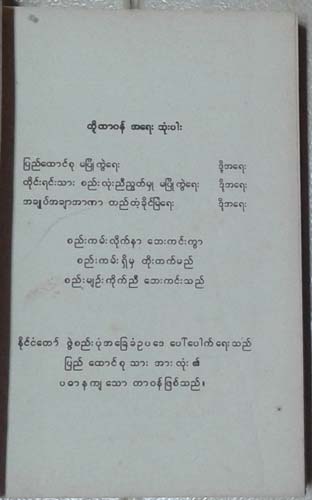 တို့တာဝန် အရေး သုံးပါး
ပြည်ထောင်စု မပြိုကွဲရေး ဒို့အရေး
တိုင်းရင်းသား စည်းလုံးညီညွတ်မှု မပြိုကွဲရေး ဒို့အရေး
အချုပ်အခြာအာဏာ တည်တံ့ခိုင်မြဲရေး ဒို့အရေး
စည်းကမ်းလိုက်နာ ဘေးကင်းကွာ
စည်းကမ်းရှိမှ တိုးတက်မည်
စည်းမျဉ်းကိုက်ညီ ဘေးကင်းသည်
နိုင်ငံတော် ဖွဲ့စည်းပုံအခြေခံဥပဒေ ပေါ်ပေါက်ရေးသည်
ပြည် ထောင်စု သား အား လုံး ၏
ပဓာနကျ သော တာဝန်ဖြစ်သည်။